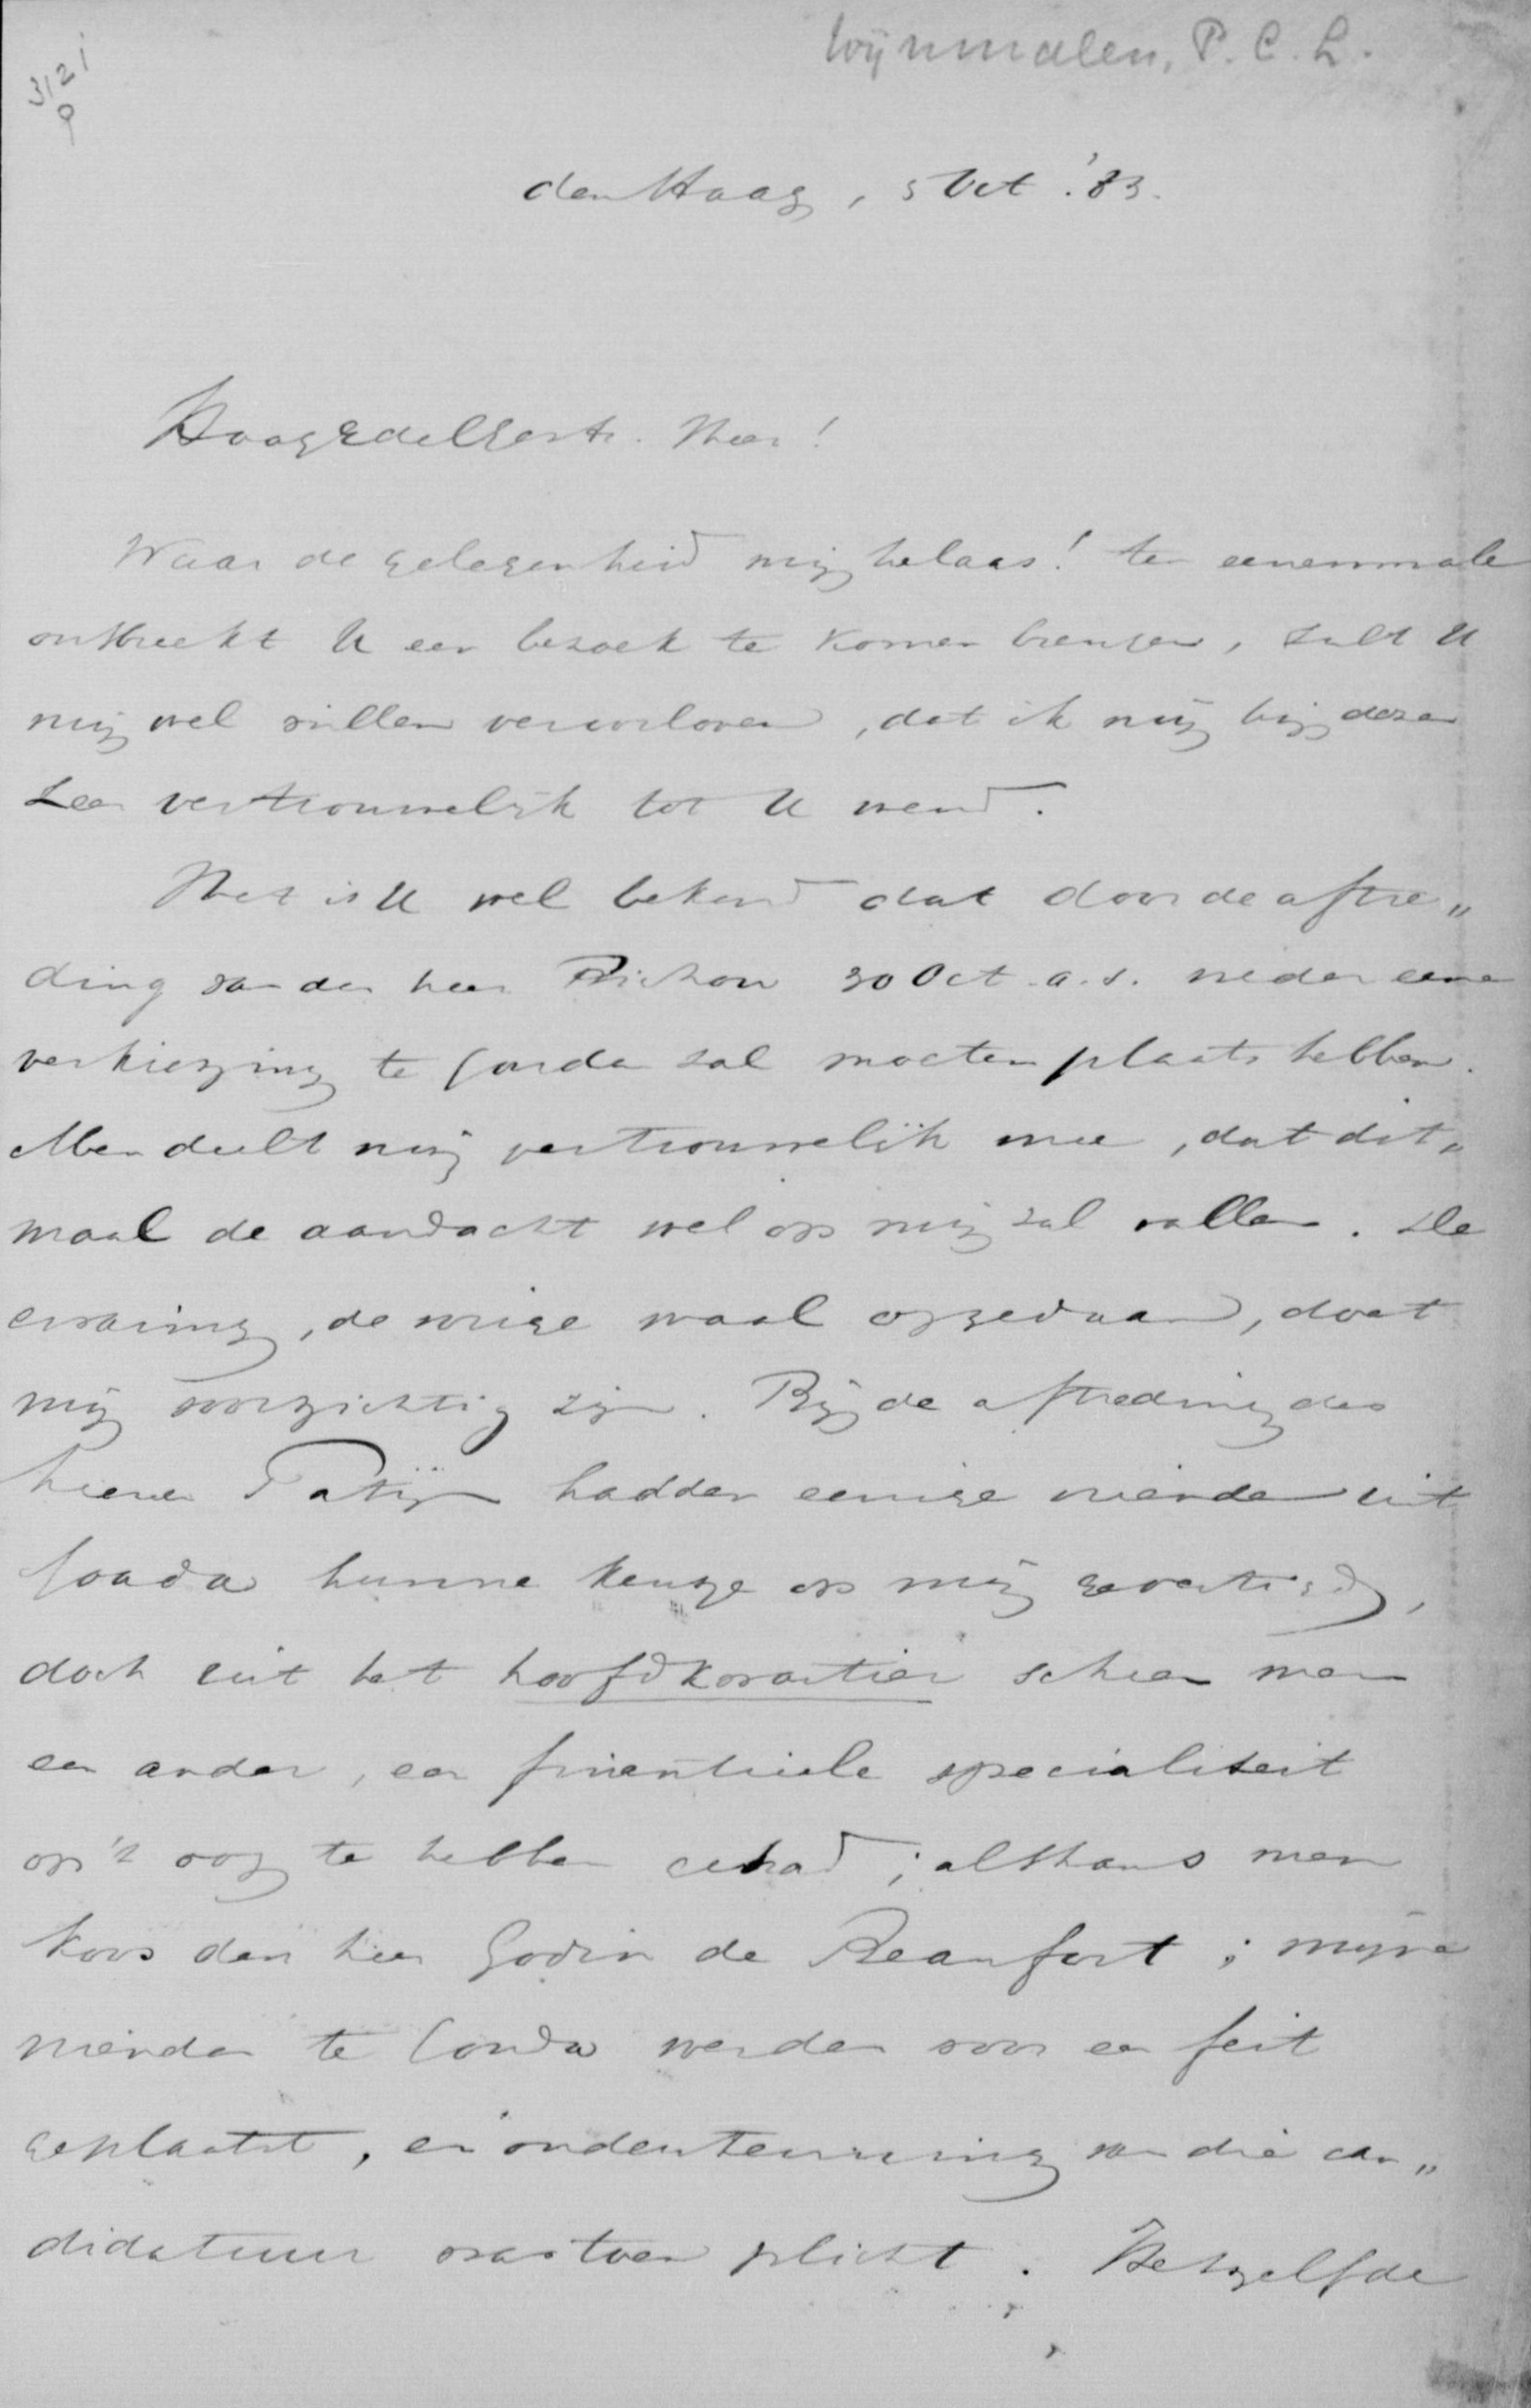 Wijnmalen, P. C. L.
3121
9
den Haag, 5 Oct. '83.
HoogEdelGestr. Heer!
Waar de gelegenheid mij helaas! ten eenenmale
ontbreekt U een bezoek te komen brengen, zult U
mij wel willen veroorloven, dat ik mij bij dezen
zeer vertrouwelijk tot U wend.
Het is U wel bekend dat door de aftre„
ding van den heer Bichon 30 Oct. a.s. weder eene
verkiezing te Gouda zal moeten plaats hebben.
Men deelt mij vertrouwelijk mee, dat dit„
maal de aandacht wel op mij zal vallen. De
ervaring, de vorige maal opgedaan, doet
mij voorzichtig zijn. Bij de aftreding des
heeren Patijn hadden eenige vrienden uit
Gouda hunne keuze op mij gevestigd,
doch uit het hoofdkwartier scheen men
een ander, een financieele specialiteit
op 't oog te hebben gehad; althans men
koos den heer Godin de Beaufort; mijne
vrienden te Gouda werden voor een feit
geplaatst, en ondersteuning van die can„
didatuur was toen plicht. Hetzelfde